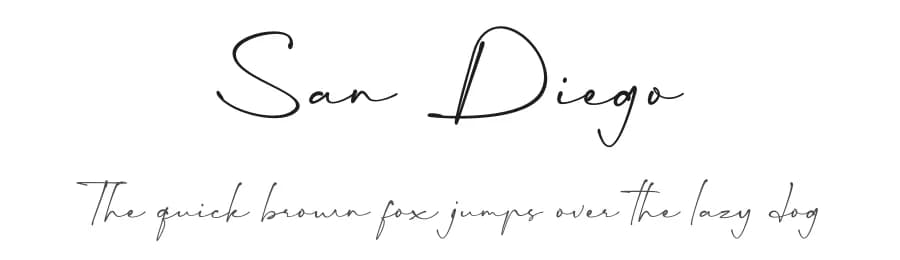 San Diego
The quick brown fox jumps over the lazy dog